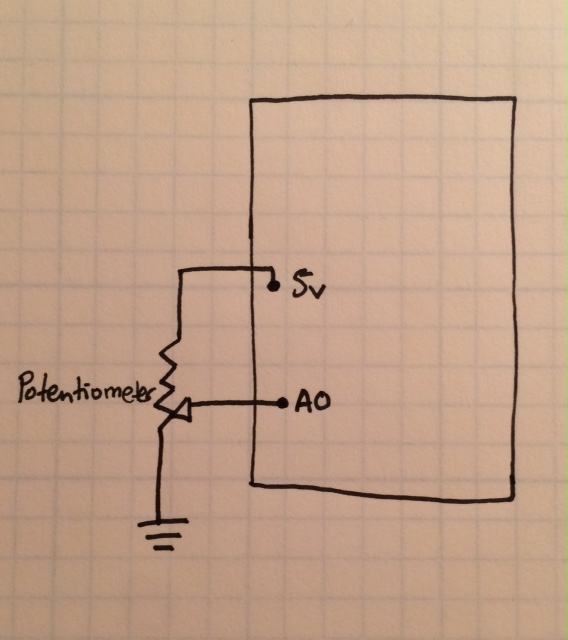 5v
Potentiometer
A0